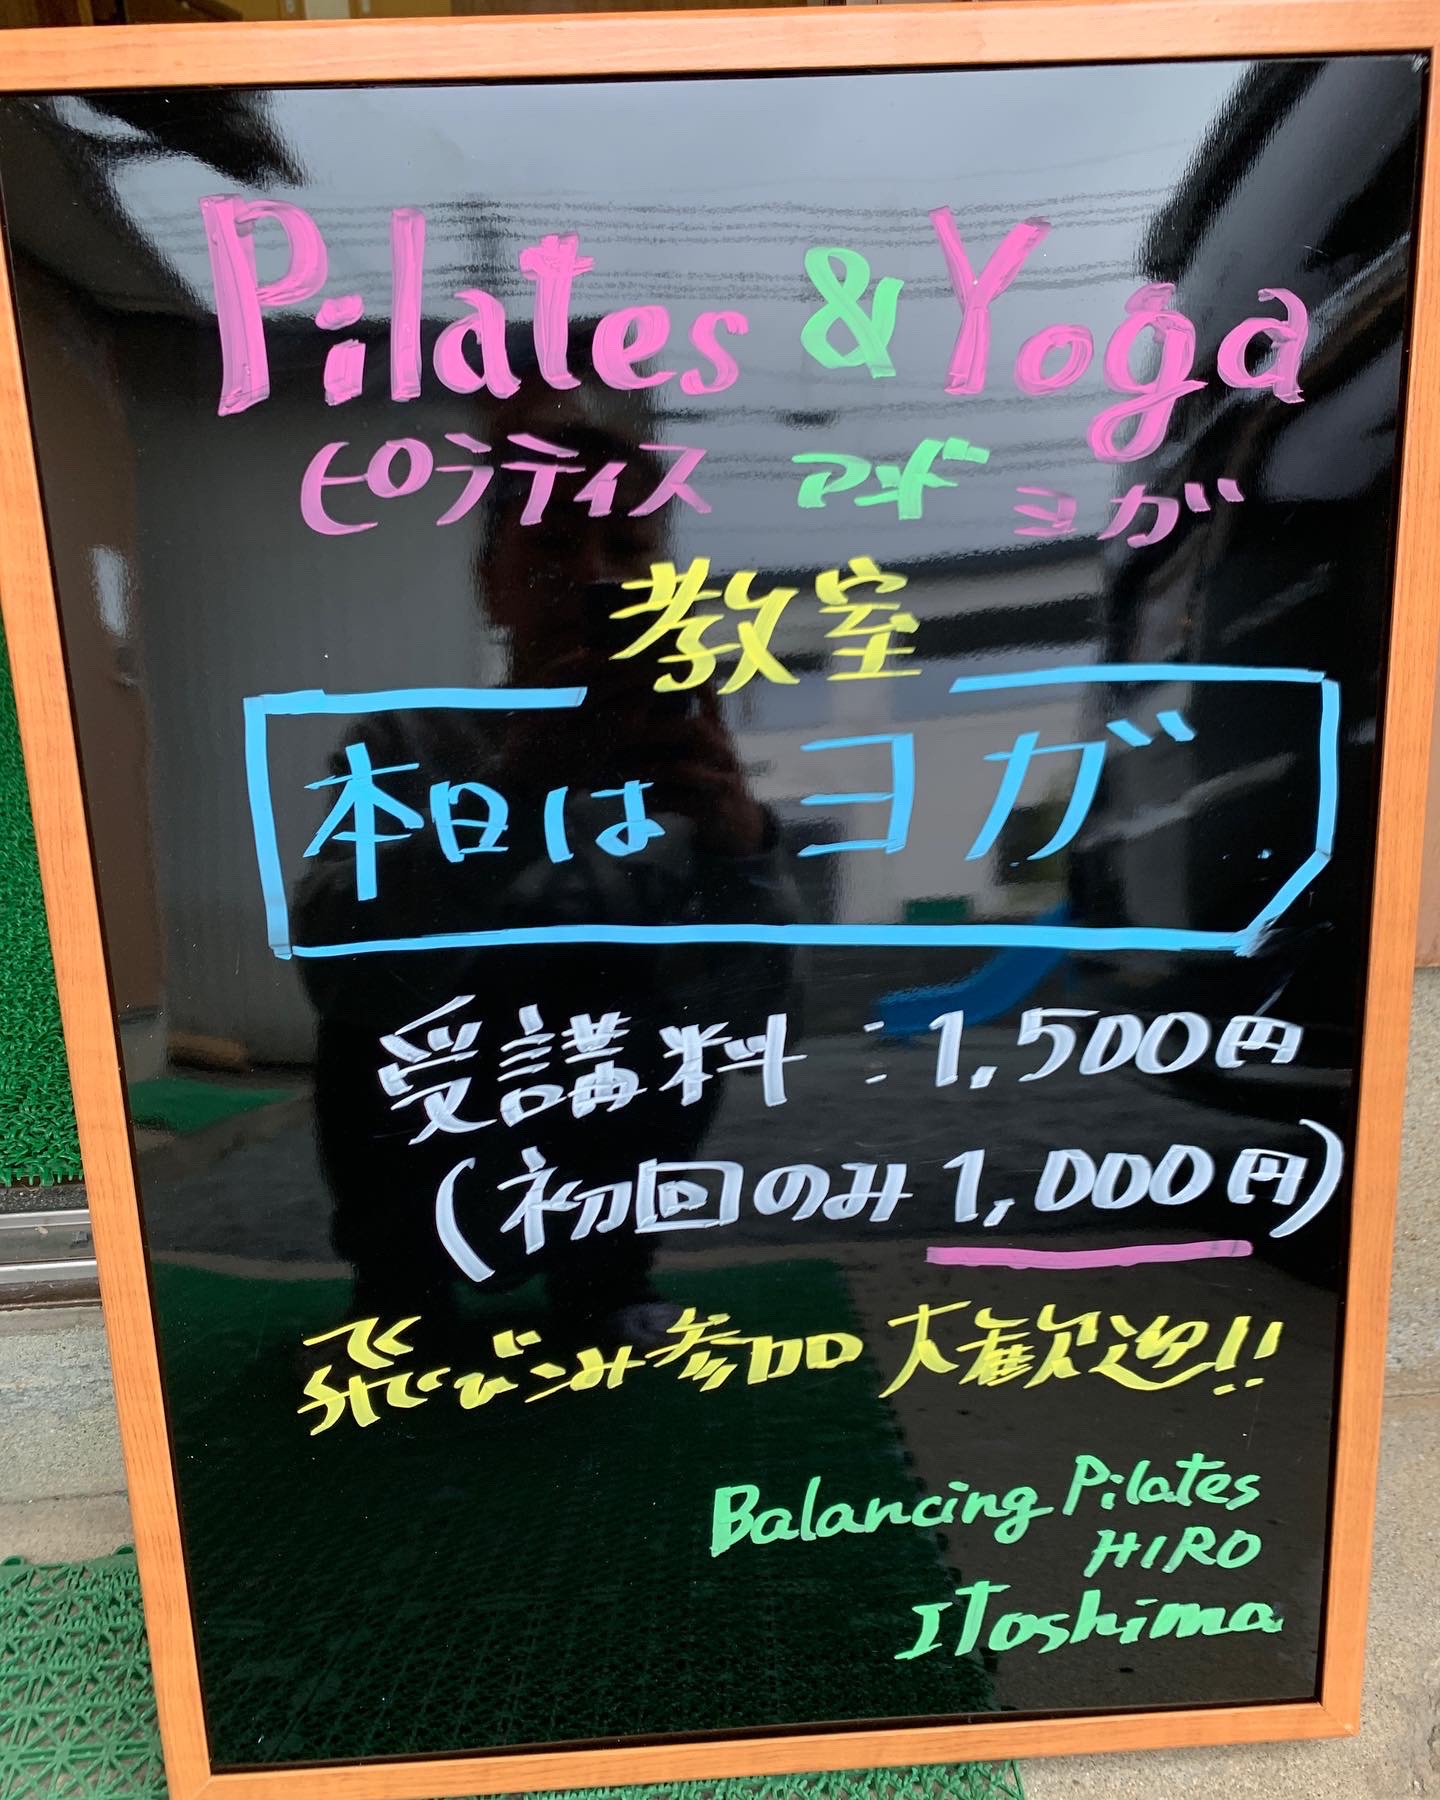 Pilates & Yoga
ピラティス アンド ヨガ
教室
本日は ヨガ
受講料:1,500円
(初回のみ1,000円)
飛びこみ参加 大歓迎!!
Balancing Pilates
HIRO
ITOshima